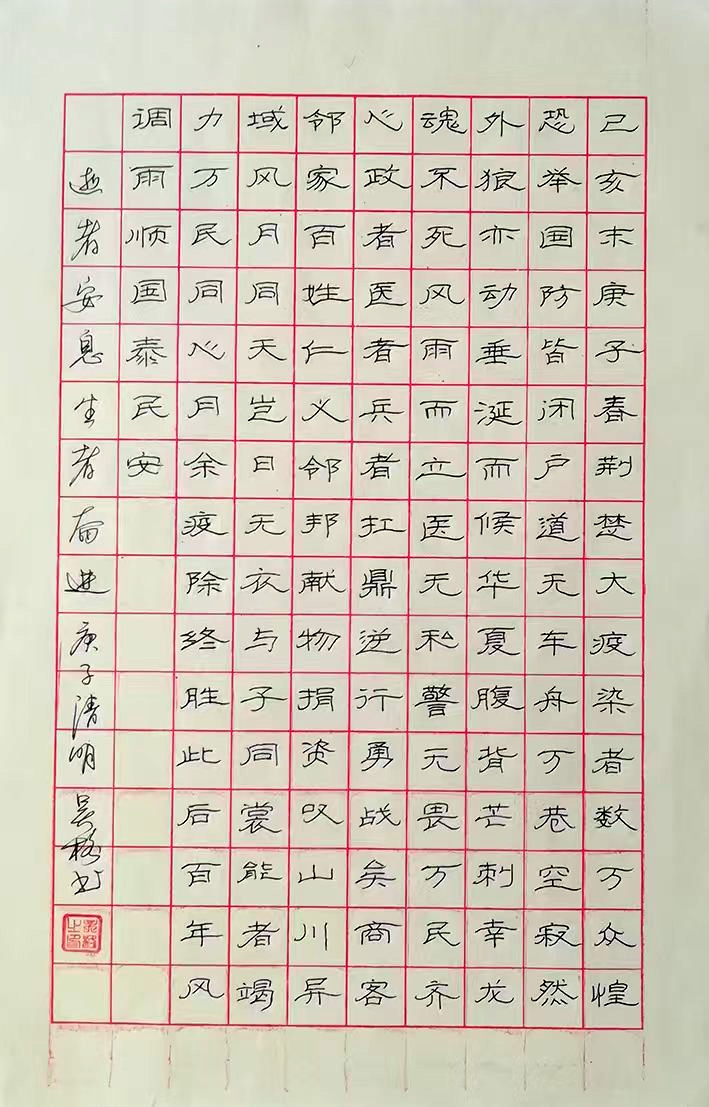 己亥末庚子春荆楚大疫染者数万众惶
恐举国防皆闭户道无车舟万巷空寂然
外狼亦动垂涎而候华夏腹背芒刺幸龙
魂不死风雨而立医无私警无畏万民齐
心政者医者兵者扛鼎逆行勇战矣商客
邻家百姓仁义邻邦献物捐资叹山川异
域风月同天岂曰无衣与子同裳能者竭
力万民同心月余疫除终胜此后百年风
调雨顺国泰民安
逝者安息生者奋进庚子清明吴格书